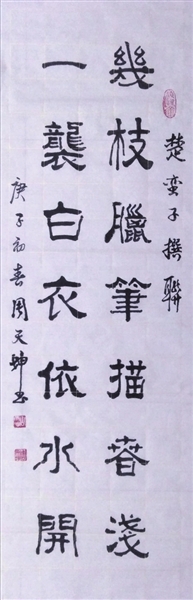 楚蛮子撰聯
幾枝臘筆描春淺
一襲白衣依水開
庚子初春周天坤书